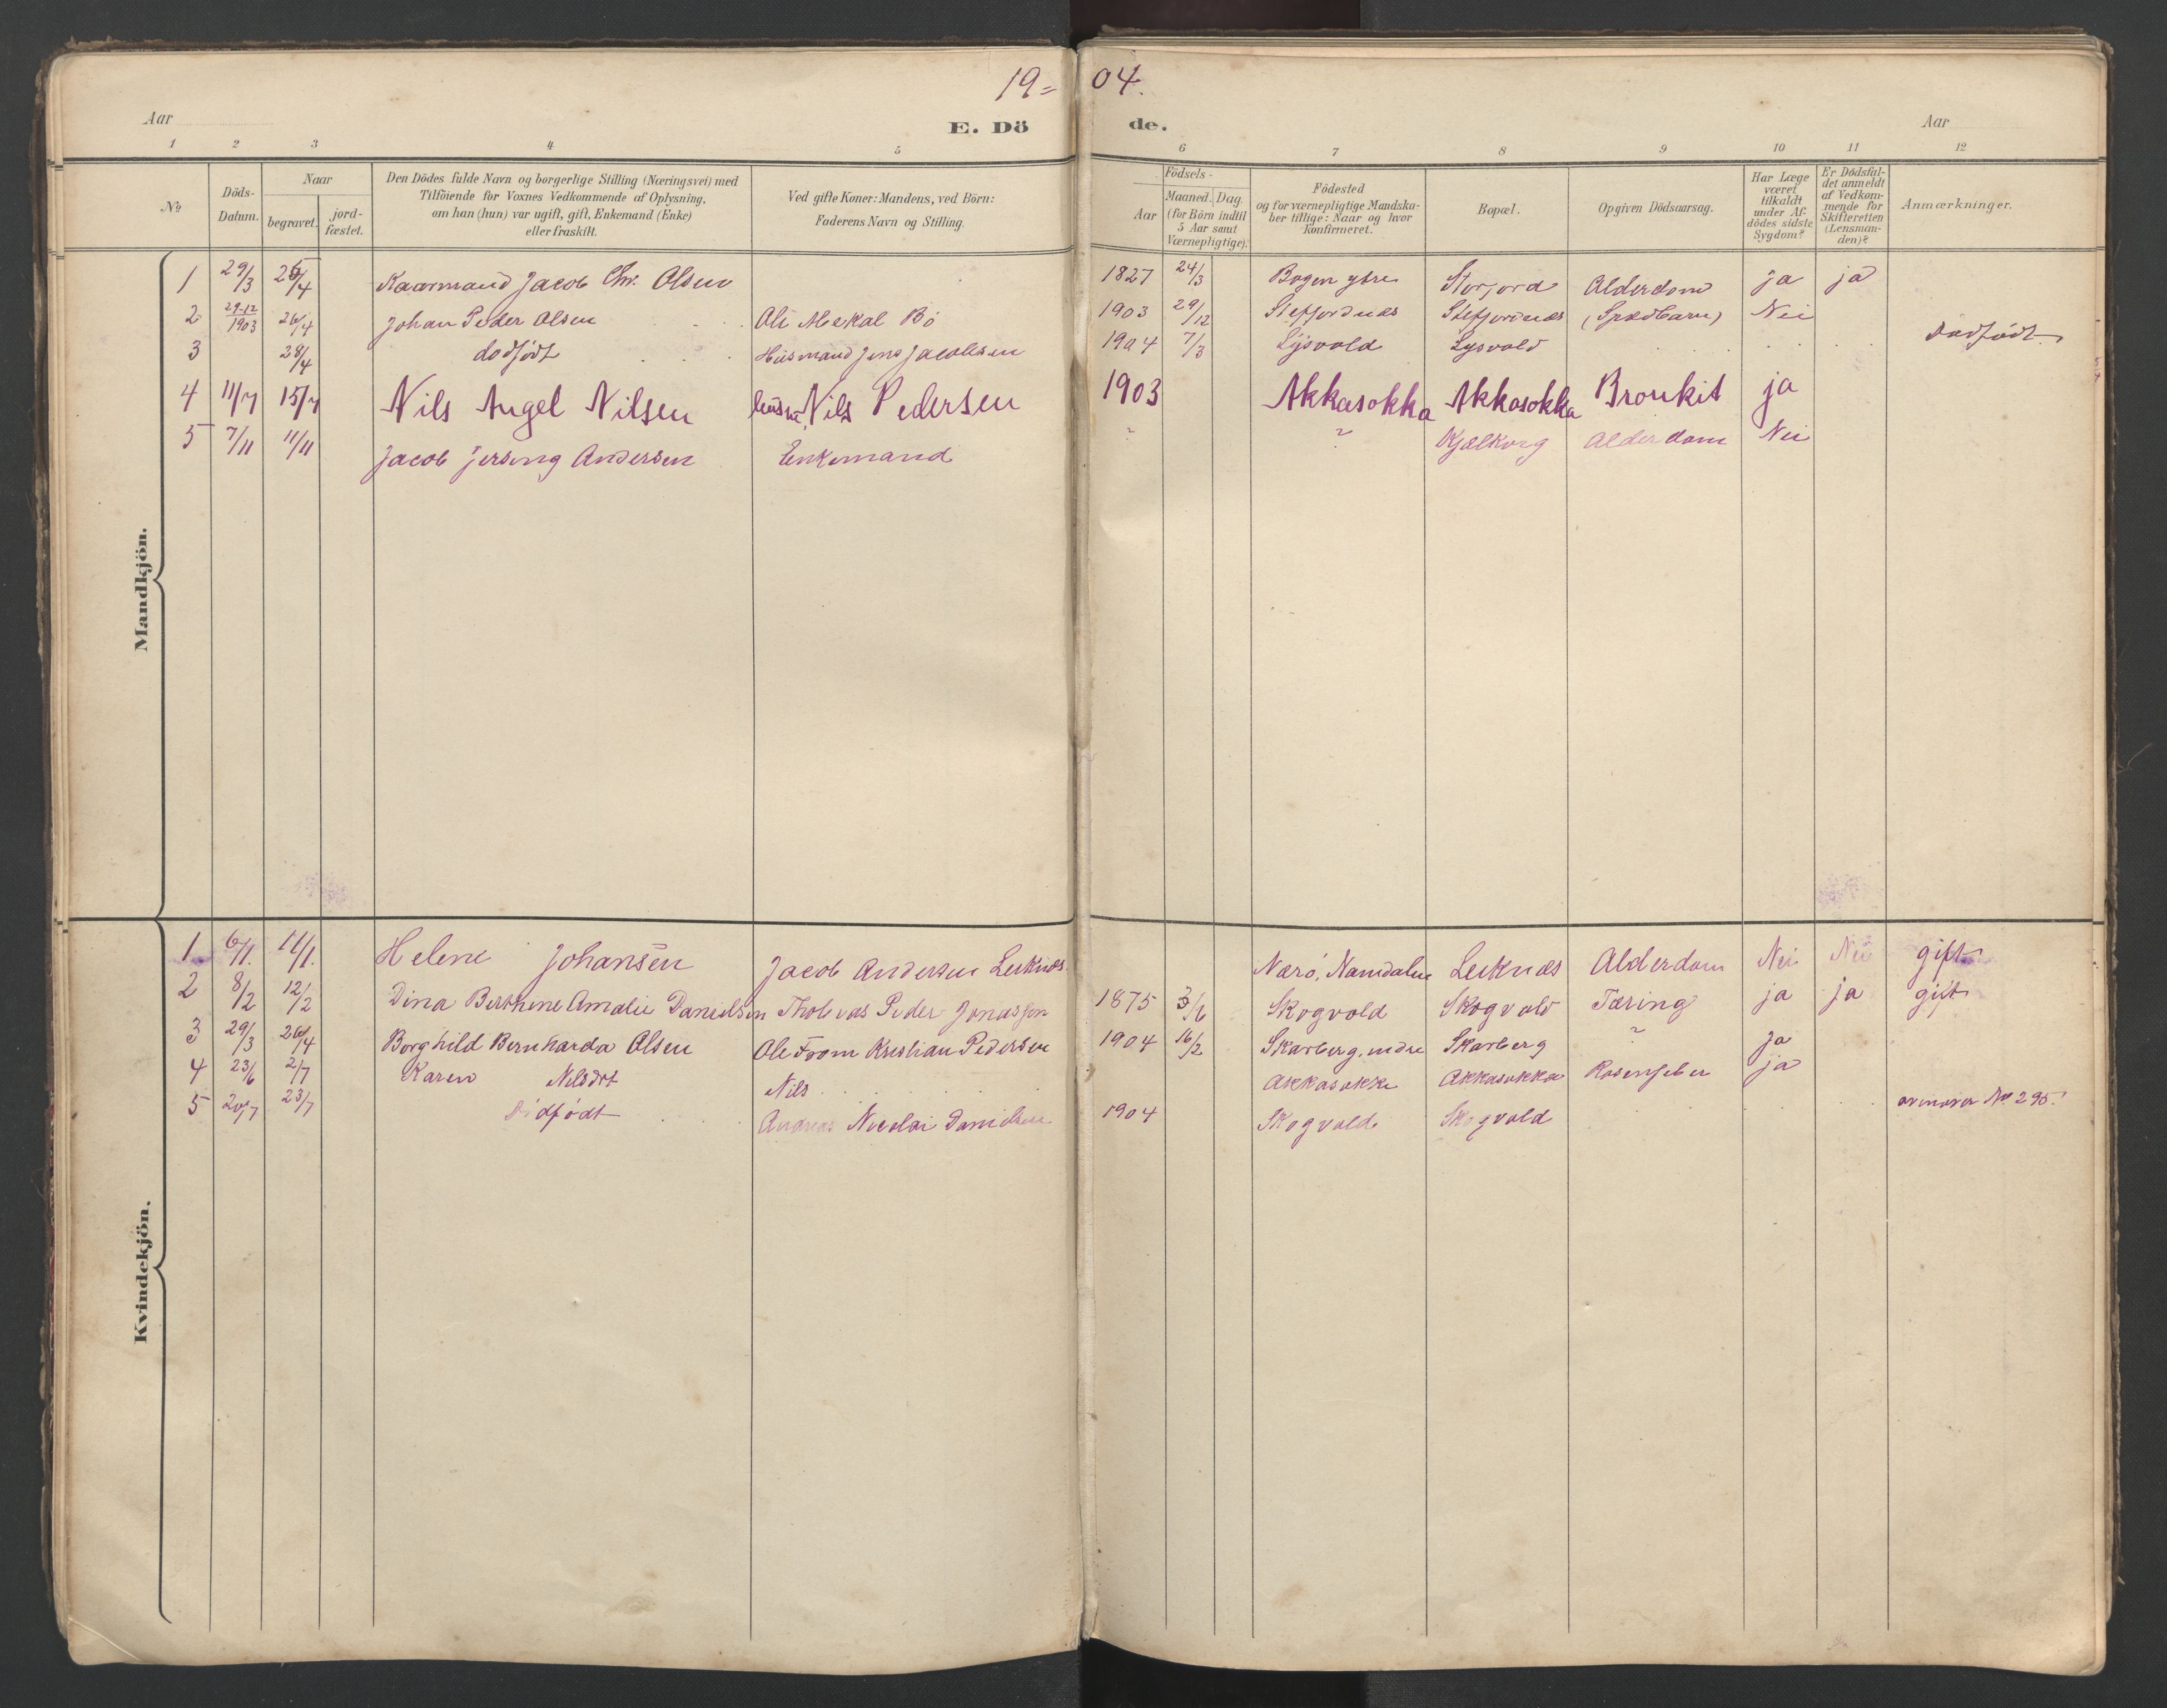 19= 04.
Aar E. Dö de. Aar
1 2 3 4 5 6 7 8 9 10 11 12
№ Döds-Datum. Naar begravet. jord-fæstet. Den Dödes fulde Navn og borgerlige Stilling (Næringsvei) med Tilföiende for Voxnes Vedkommende af Oplysning, om han (hun) var ugift, gift, Enkemand (Enke) eller fraskilt. Ved gifte Koner: Mandens, ved Börn: Faderens Navn og Stilling. Födsels- Aar Maaned. Dag. (for Börn indtil 5 Aar samt Værnepligtige). Födested og for værnepligtige Mandskaber tillige: Naar og hvor Konfirmeret. Bopæl. Opgiven Dödsaarsag. Har Læge været tilkaldt under Afdödes sidste Sygdom? Er Dödsfaldet anmeldt af Vedkommende for Skifteretten (Lensmanden)? Anmærkninger.
Mandkjön.
1 29/3 25/4 Kaarmand Jacob Chr. Olsen 1827 24/3 Bogen ytre Storjord Alderdom ja ja
2 29-12/1903 26/4 Johan Peder Olsen Ole Mekal Bö 1903 29/12 Stefjordnæs Stefjordnæs (Spædbarn) Nei
3 28/4 dödfödt Husmand Jens Jacobsen 1904 7/3 Lysvold Lysvold Dödfödt.
4 11/7 15/7 Nils Angel Nilsen Nils Pedersen 1903 Akkasokka Akkasokka Bronkit ja
5 7/11 11/11 Jacob Jersing Andersen Enkemand ? ? Kjælkong Alderdom Nei
Kvindekjön.
1 6/1. 11/1. Helene Johansen Jacob Andersen Leiknæs. Nærö, Namdalen Leiknæs Alderdom Nei Nei gift
2 8/2 12/2 Dina Berthine Amalie Danielsen Thol vas Peder Jonassen 1875 3/6 Skogvold Skogvold Tæring ja ja gift
3 29/3 26/4 Borghild Bernharda Olsen Ole From Kristian Pedersen 1904 16/2 Skarberg, indre Skarberg ? ja
4 23/6 2/7 Karen Nilsdt Nils Akkasokka Akkasokka Rosenfeber ja
5 20/7 23/7 Dödfödt Andreas Nicolai Danielsen 1904 Skogvold Skogvold No 295.